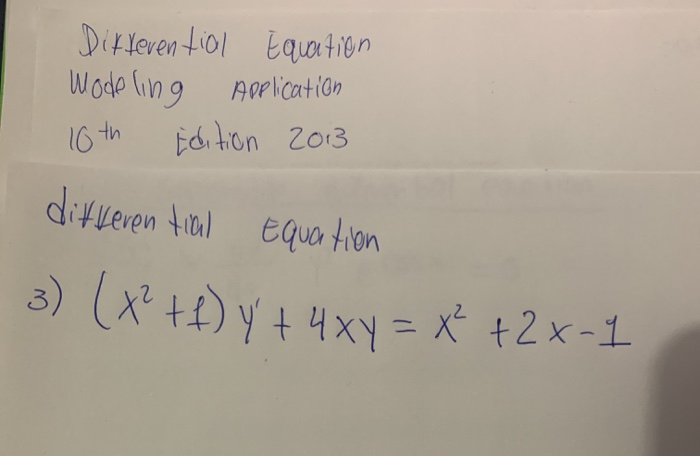 Differential Equation
Modeling Application
10th Edition 2013
differential Equation
3) (x² +1) y' + 4xy = x² +2x-1